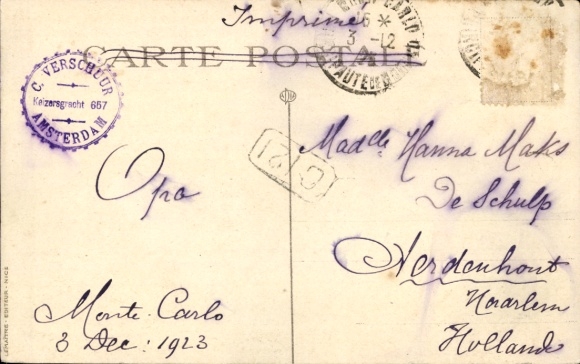 Imprimé
CARTE POSTALE
MONTE CARLO
16 *
3 - 12
C. VERSCHUUR
Keizersgracht 657
AMSTERDAM
G 121
Mad.elle Hanna Maks
De Schulp
Aerdenhout
Haarlem
Holland
Opa
Monte-Carlo
3 Dec: 1923
EDITEUR - NICE